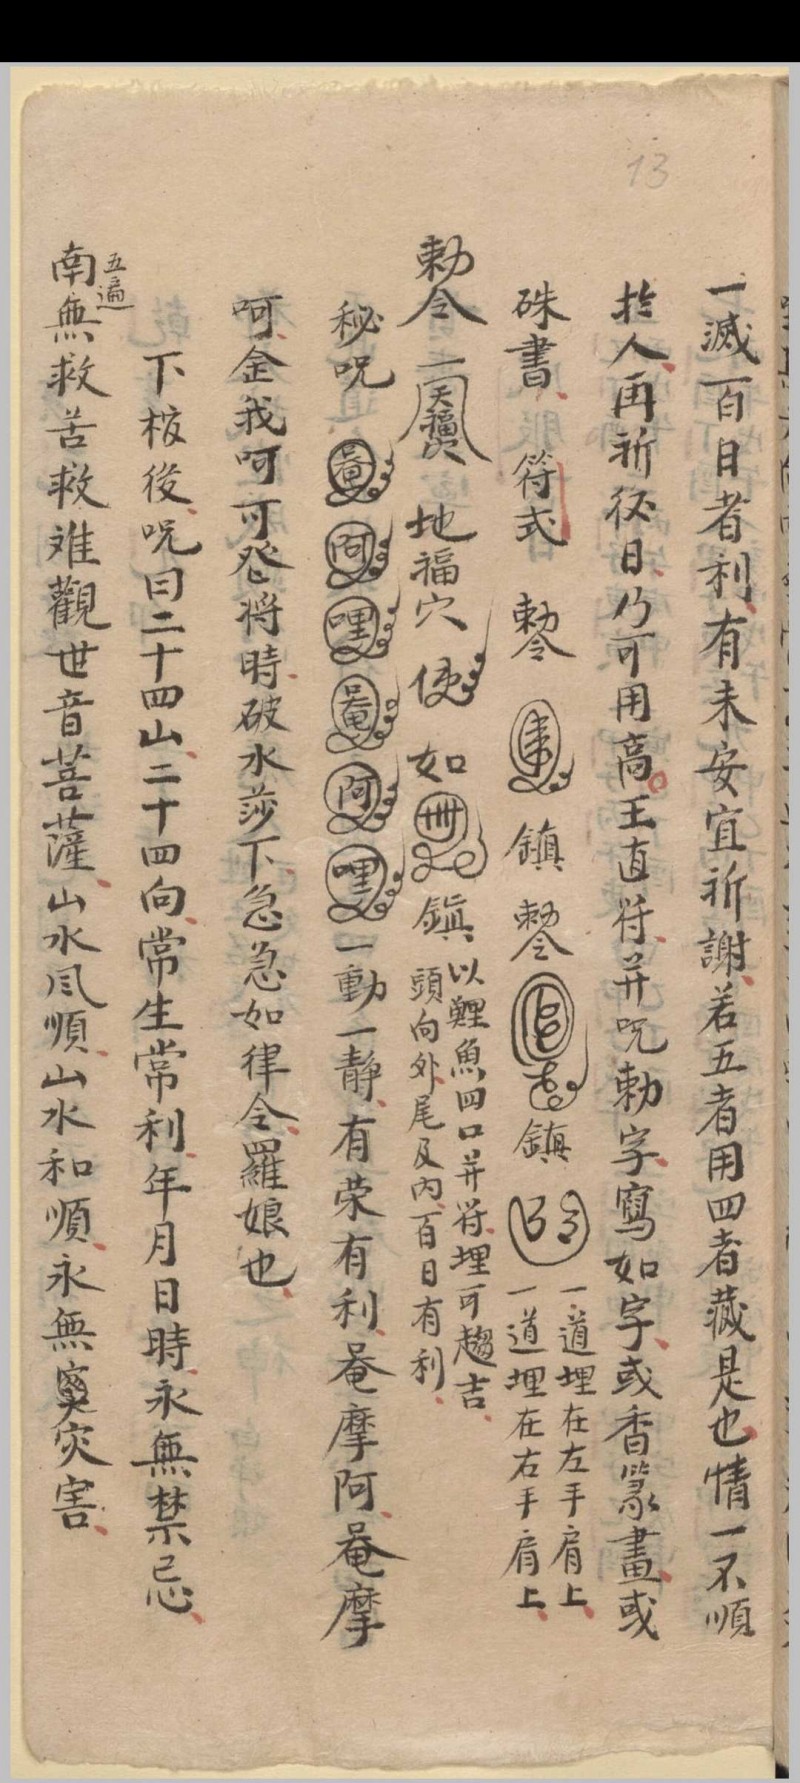 13
一滅一百日者利有未安宜祈謝若五者用四者藏是也情一不順
扵人再祈征日乃可用高王直符并咒勅字寫如字或香篆畫或
硃書 符式 勅令 鎮 勅令 鎮 一道埋在左手肩上
一道埋在右手肩上
勅令 天福穴 地福穴 使 如 鎮 以鯉魚四口并符埋可趨吉
頭向外尾及內百日有利
秘咒 菴 阿 哩 菴 阿 哩 一動一靜有荣有利菴摩阿菴摩
呵金我呵可發將時破水莎下急急如律令羅娘也
下椁後咒曰二十四山二十四向常生常利年月日時永無禁忌
五遍
南無救苦救难觀世音菩薩山水风順山水和順永無灾害